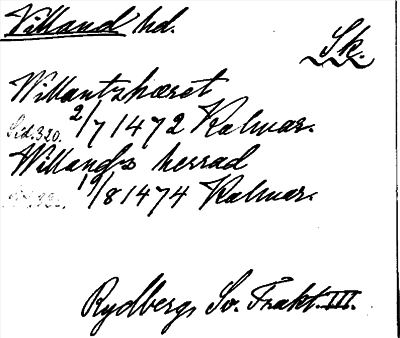 Villand hd.
Sk.
Willantzhæret
Sid.320. 2/7 1472 Kalmar.
Willandz herrad
19/8 1474 Kalmar.
Rydberg, Sv. Trakt. III.